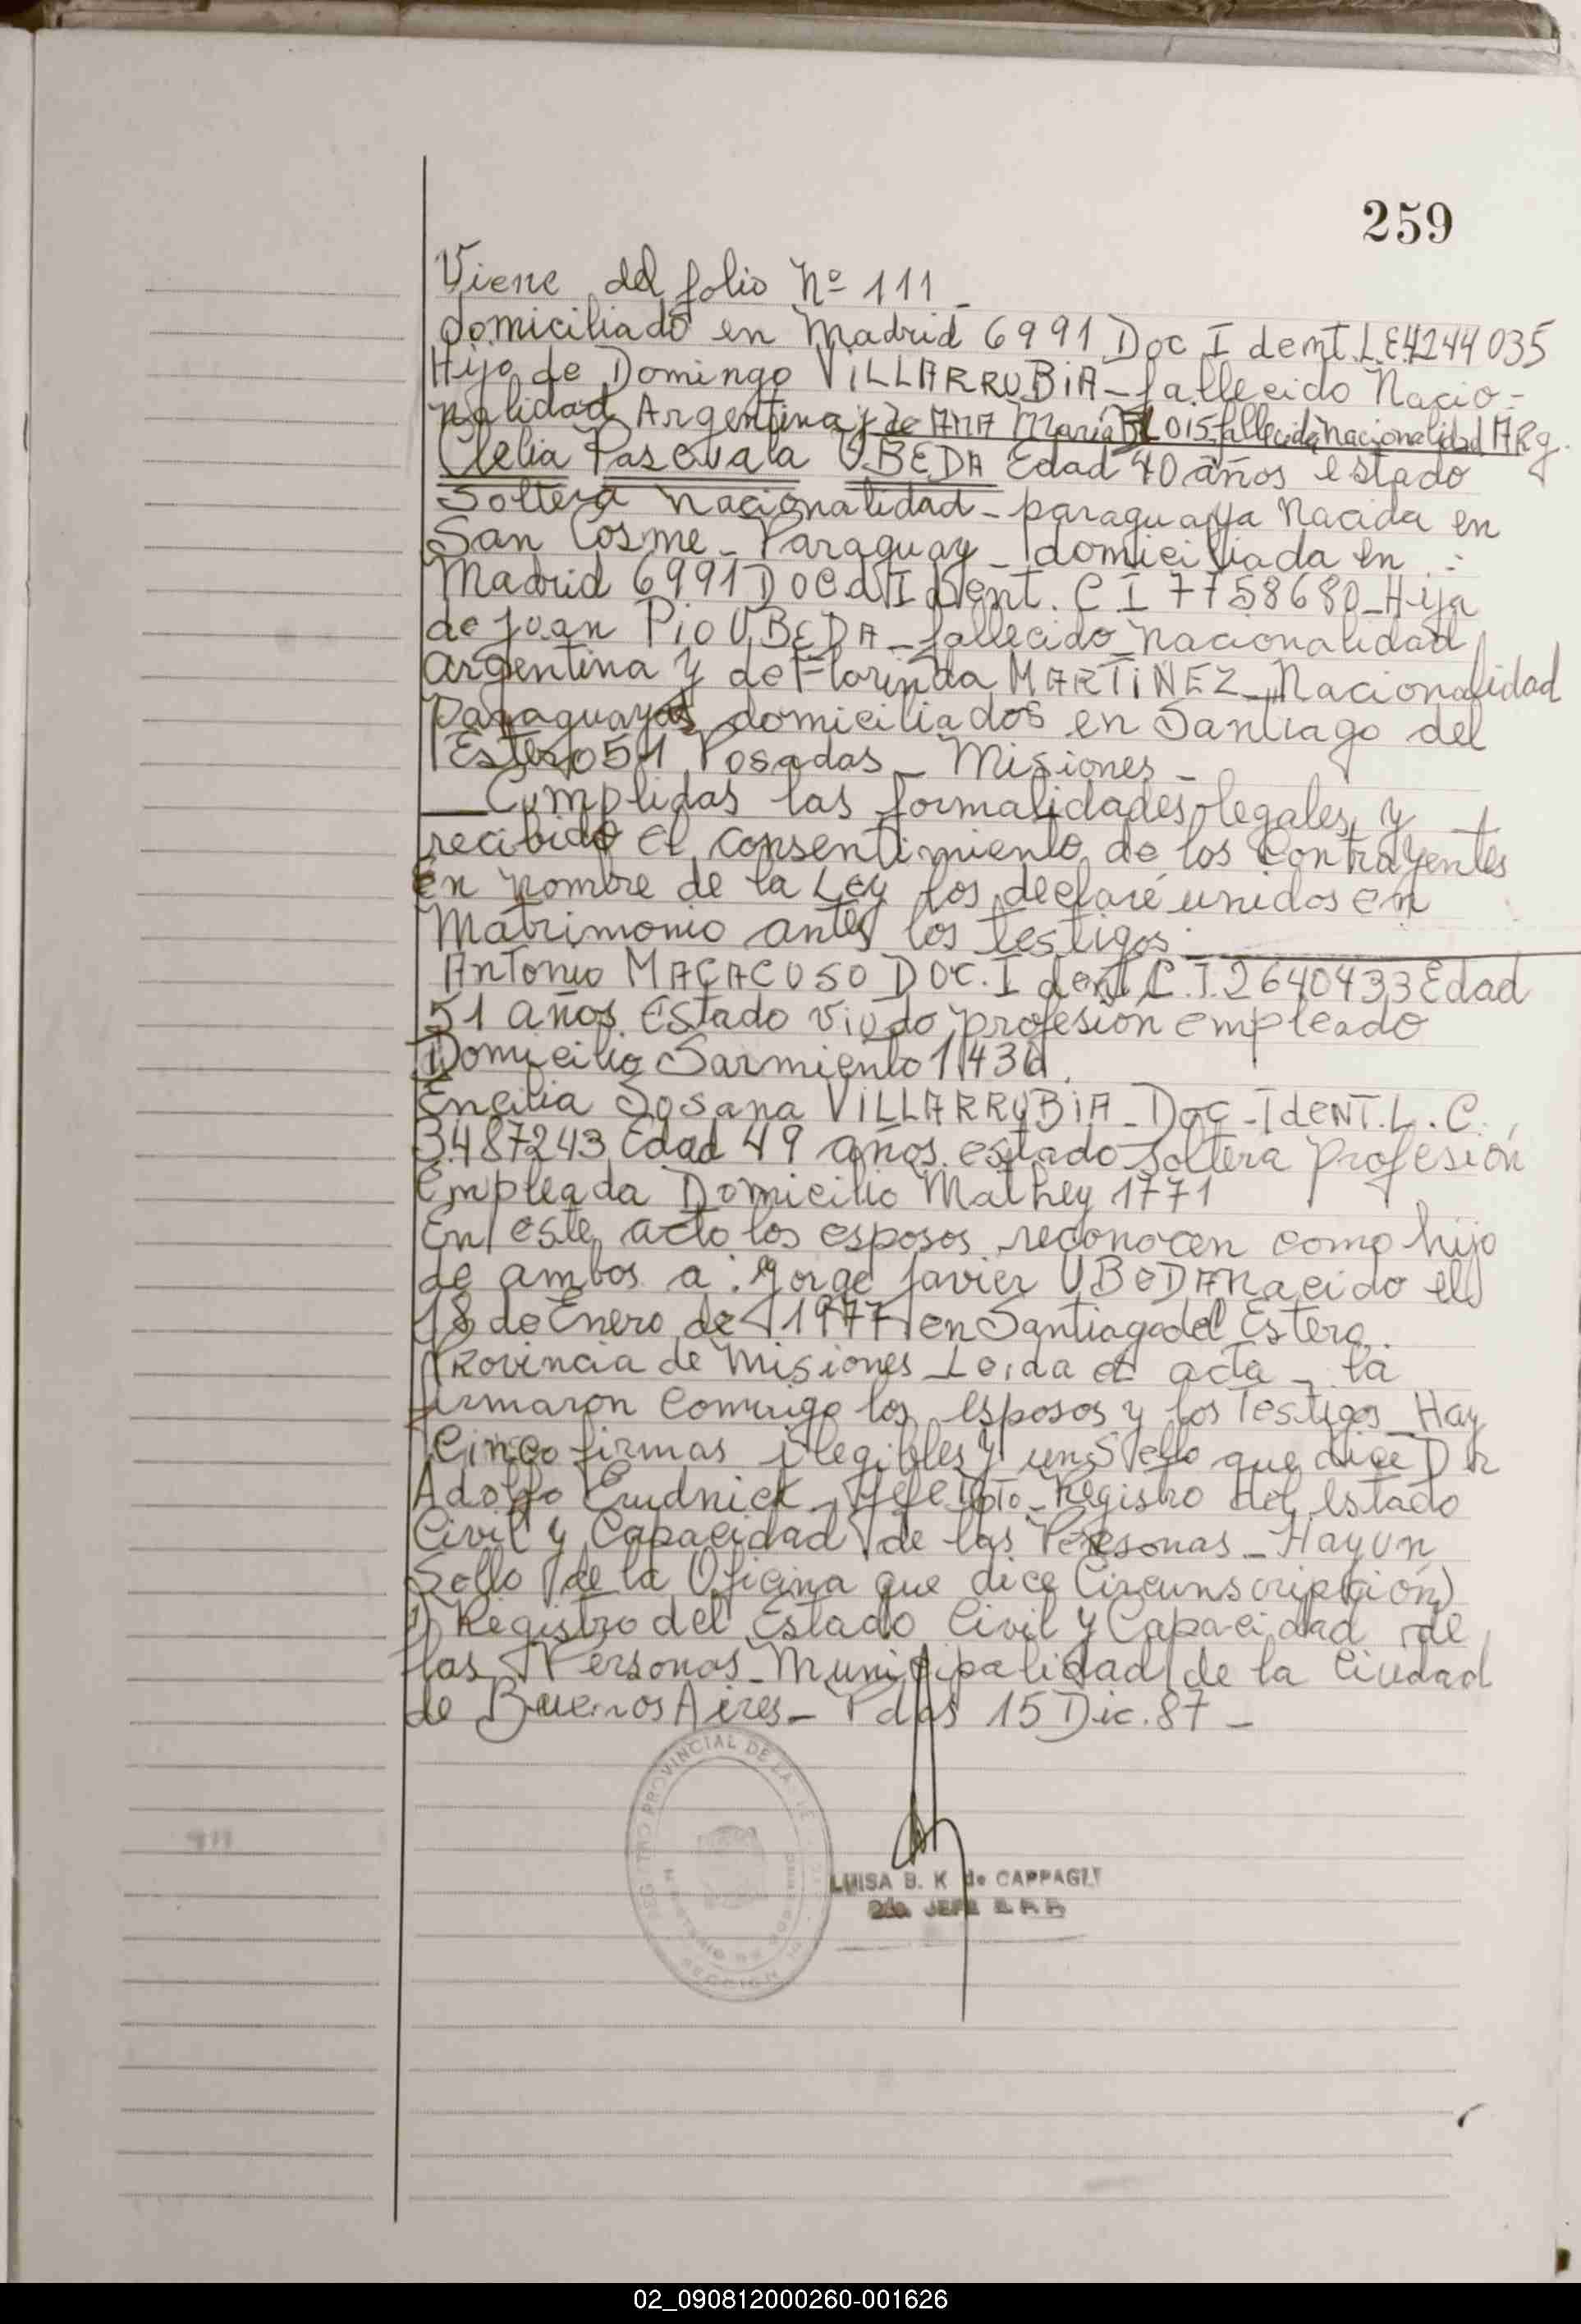 259
Viene del folio Nº 111_
domiciliado en Madrid 6991 Doc Ident. L.E 4244035
Hijo de Domingo VILLARRUBIA_fallecido Nacio=
nalidad Argentina y de ANA María fallecida nacionalidad ARg.
Clelia Pascuala UBEDA Edad 40 años estado
Soltera nacionalidad_paraguaya nacida en
San Cosme_Paraguay_domiciliada en
Madrid 6991 Doc.d Ident. C I 7758680_Hija
de Juan Pio UBEDA_fallecido_nacionalidad
argentina y de Florinda MARTINEZ_Nacionalidad
Paraguaya domiciliados en Santiago del
Estero 51 Posadas_Misiones_
__Cumplidas las formalidades legales, y
recibido el consentimiento de los contrayentes
En nombre de la Ley los declaré unidos en
Matrimonio antes los testigos
Antonio Doc. Ident. C.I. 2640433 Edad
51 años Estado viudo profesión empleado
Domicilio Sarmiento
Susana VILLARRUBIA_Doc_Ident. L.C.
3.487243 Edad 49 años estado Soltera profesión
Empleada Domicilio Mathey 1771
En este acto los esposos reconocen como hijo
de ambos a: Jorge Javier UBEDA nacido el
18 de Enero de 1977 en Santiago del Estero.
Provincia de Misiones_Leida el acta_la
firmaron conmigo los esposos y los Testigos_Hay
Cinco firmas ilegibles y un Sello que dice Dr
Adolfo Jefe Registro del estado
Civil y Capacidad de las Personas_Hay un
Sello de la Oficina que dice Circunscripción
1) Registro del Estado Civil y Capacidad de
las Personas_Municipalidad de la Ciudad
de Buenos Aires_Pdas 15 Dic. 87_
REGISTRO PROVINCIAL DE LA
SECCION
LUISA B. K de CAPPAGLI
2da. JEFE
02_090812000260-001626